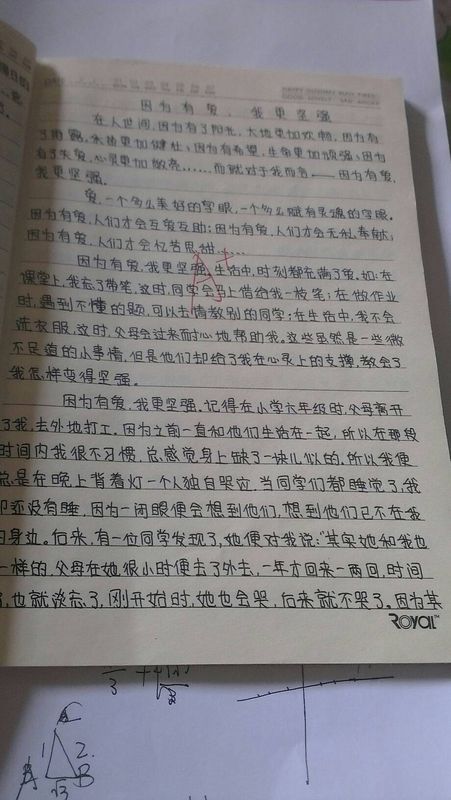 因为有爱，我更坚强
在人世间，因为有了阳光，大地更加欢畅，因为有
了雨露，禾苗更加健壮；因为有希望，生命更加顽强；因为
有了关爱，心灵更加敞亮……而就对于我而言——因为有爱，
我更坚强。
爱，一个多么美好的字眼，一个多么赋有灵魂的字眼。
因为有爱，人们才会互爱互助；因为有爱，人们才会无私奉献；
因为有爱，人们才会忆苦思甜……
因为有爱，我更坚强。生活中，时刻都充满了爱。如：在
课堂上，我忘了带笔，这时，同学会马上借给我一枝笔；在做作业
时，遇到不懂的题，可以去请教别的同学；在生活中，我不会
洗衣服，这时，父母会过来耐心地帮助我。这些虽然是一些微
不足道的小事情，但是他们却给了我在心灵上的支撑，教会了
我怎样变得坚强。
因为有爱，我更坚强。记得在小学六年级时，父母离开
了我，去外地打工。因为之前一直和他们生活在一起，所以在那段
时间内我很不习惯，总感觉身上缺了一块儿似的。所以我便
总是在晚上背着灯一个人独自哭泣，当同学们都睡觉了，我
却还没有睡，因为一闭眼便会想到他们，想到他们已不在我
的身边。后来，有一位同学发现了，她便对我说："其实她和我也
一样的，父母在她很小时便去了外去，一年才回来一两回，时间
，也就淡忘了，刚开始时，她也会哭，后来就不哭了。因为其
ROYAL
3
C
1 2.
A √3 B